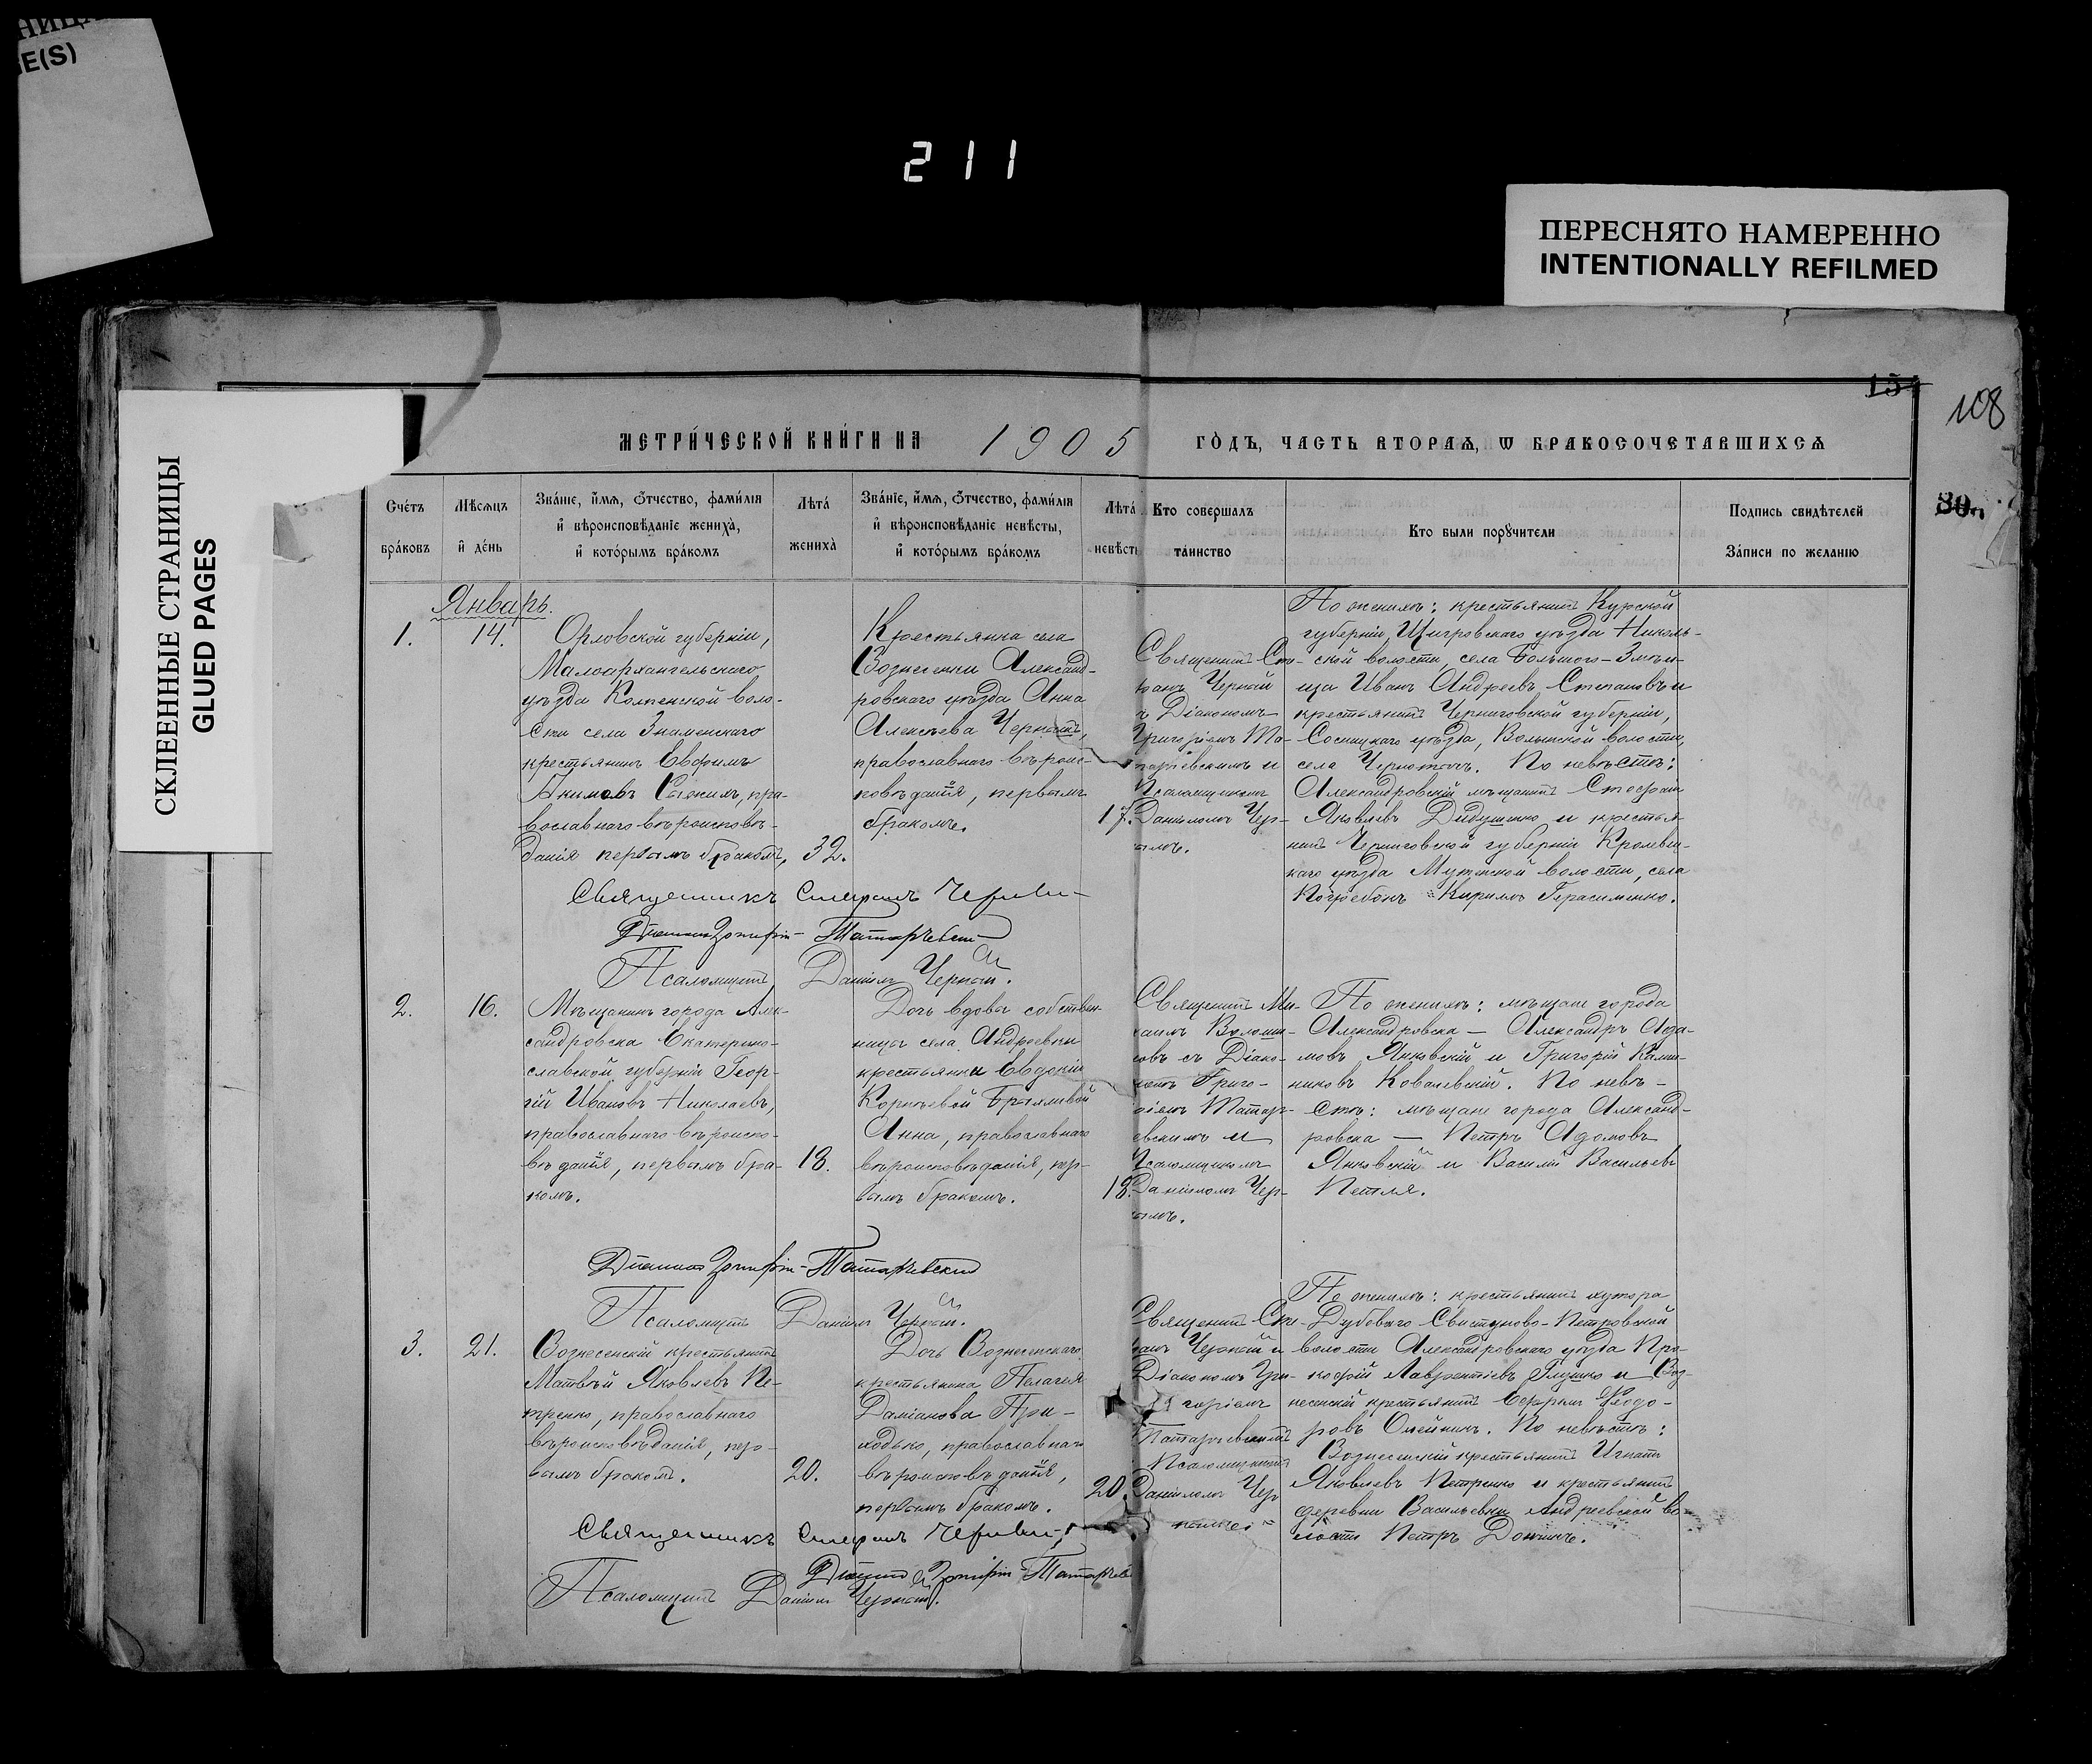 НИЦЫ
GE(S)
211
ПЕРЕСНЯТО НАМЕРЕННО
INTENTIONALLY REFILMED
СКЛЕЕННЫЕ СТРАНИЦЫ
GLUED PAGES
154
108
МЕТРИ́ЧЕСКОЙ КНИ́ГИ НА 1905 ГО́ДЪ, ЧАСТЬ ВТОРАѦ, Ѡ БРАКОСОЧЕТАВШИХСѦ
Сче́тъ
бра́ковъ
Мѣсѧцъ
и҆ де́нь
Зва́нїе, и҆́мѧ, Ѻ҆тчество, фами́лїѧ
и҆ вѣроисповѣ́данїе жениха̀,
и҆ кото́рымъ бра́комъ
Лѣта́
жениха̀
Зва́нїе, и҆́мѧ, Ѻ҆тчество, фами́лїѧ
и҆ вѣроисповѣ́данїе невѣ́сты,
и҆ кото́рымъ бра́комъ
Лѣта́
невѣ́сты
Кто совершалъ
та́инство
Кто были порꙋчители
Подпись свидѣтелей
За́писи по желанїю
80
Январь.
1.
14.
Орловской губерніи,
Малоархангельскаго
уѣзда Колпенской воло-
сти села Знаменскаго
крестьянинъ Евфимъ
Акимовъ пра-
вославнаго вѣроисповѣ-
данія первымъ бракомъ,
32.
Крестьянка села
Вознесенки Александ-
ровскаго уѣзда Анна
Алексѣева
православнаго вѣроис-
повѣданія, первымъ
бракомъ.
17.
Священникъ Сте-
фанъ Черный
съ Діакономъ
Григоріемъ Та-
таржевскимъ и
Псаломщикомъ
Даніиломъ Чер-
нымъ.
По женихѣ: крестьянинъ Курской
губерніи, Щигровскаго уѣзда Николь-
ской волости, села Большого-Змѣи-
нца Иванъ Андреевъ Степановъ и
крестьянинъ Черниговской губерніи,
Сосницкаго уѣзда, Волынской волости,
села Чернотичъ. По невѣстѣ:
Александровскій мѣщанинъ Стефанъ
Яковлевъ Дидушко и крестья-
нинъ Черниговской губерніи Кролевец-
каго уѣзда Мутинской волости, села
Погребокъ Кириллъ Герасименко.
Священникъ Стефанъ Черный
Діаконъ Григорій Татаржевскій
Псаломщикъ Даніилъ Черный.
2.
16.
Мѣщанинъ города Алек-
сандровска Екатерино-
славской губерніи Геор-
гій Ивановъ Николаевъ,
православнаго вѣроиспо-
вѣданія, первымъ бра-
комъ.
18.
Дочь вдовы собствен-
ницы села Андреевки
крестьянки Евдокіи
Корнѣевой
Анна, православнаго
вѣроисповѣданія, пер-
вымъ бракомъ.
18.
Священникъ Ми-
хаилъ Волоши-
новъ съ Діако-
номъ Григо-
ріемъ Татарж-
евскимъ и
Псаломщикомъ
Даніиломъ Чер-
нымъ.
По женихѣ: мѣщане города
Александровска — Александръ Ада-
мовъ Янковскій и Григорій Калин-
никовъ Ковалевскій. По невѣ-
стѣ: мѣщане города Александ-
ровска — Петръ Адамовъ
Янковскій и Василій Васильевъ
Петля.
Діаконъ Григорій Татаржевскій
Псаломщикъ Даніилъ Черный.
3.
21.
Вознесенскій крестьянинъ
Матвѣй Яковлевъ Пе-
тренко, православнаго
вѣроисповѣданія, пер-
вымъ бракомъ.
20.
Дочь Вознесенскаго
крестьянина Пелагея
Даміанова При-
ходько, православнаго
вѣроисповѣданія,
первымъ бракомъ.
20.
Священникъ Сте-
фанъ Черный и
Діакономъ Гри-
горіемъ
Татаржевскимъ
Псаломщикомъ
Даніиломъ Чер
нымъ
По женихѣ: крестьянинъ хутора
Дубоваго Свистуново-Петровской
волости Александровскаго уѣзда Про-
кофій Лаврентіевъ Глушко и Воз-
несенскій крестьянинъ Ефремъ Ѳеодо-
ровъ Олейникъ. По невѣстѣ:
Вознесенскій крестьянинъ Игнатъ
Яковлевъ Петренко и крестьянинъ
деревни Васильевки Андреевской во-
лости Петръ
Священникъ Стефанъ Черный
Діаконъ Григорій Татаржев
Псаломщикъ Даніилъ Черный.